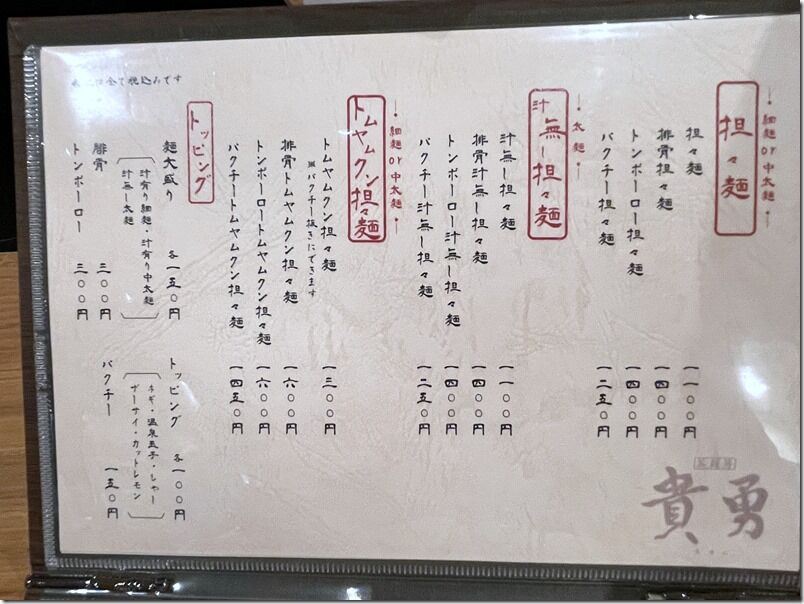 細麺or中太麺
担々麺
担々麺 一一〇〇円
排骨担々麺 一四〇〇円
トンポーロー担々麺 一四〇〇円
パクチー担々麺 一二五〇円
太麺
汁無し担々麺
汁無し担々麺 一一〇〇円
排骨汁無し担々麺 一四〇〇円
トンポーロー汁無し担々麺 一四〇〇円
パクチー汁無し担々麺 一二五〇円
細麺or中太麺
トムヤムクン担々麺
トムヤムクン担々麺 一三〇〇円
※パクチー抜きにできます
排骨トムヤムクン担々麺 一六〇〇円
トンポーロートムヤムクン担々麺 一六〇〇円
パクチートムヤムクン担々麺 一四五〇円
トッピング
麺大盛り 各一五〇円
汁有り細麺・汁有り中太麺
汁無し太麺
排骨 三〇〇円
トンポーロー 三〇〇円
トッピング 各一〇〇円
ネギ・温泉玉子・シャー
ザーサイ・カットレモン
パクチー 一五〇円
全て税込みです
貴勇